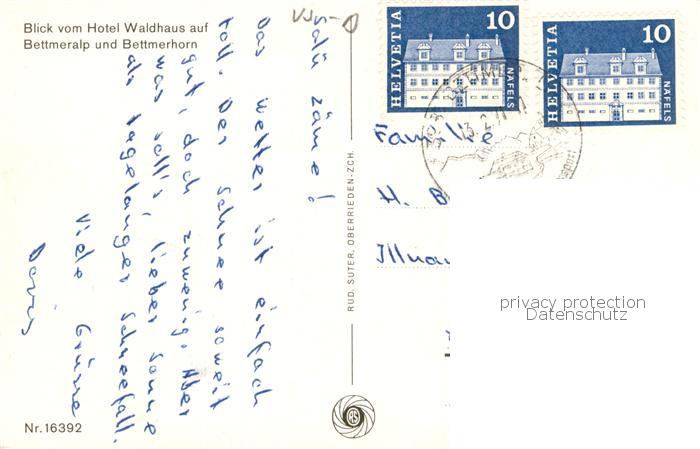 Blick vom Hotel Waldhaus auf
Bettmeralp und Bettmerhorn
Salü zäme!
Das Wetter ist einfach
toll. Der Schnee soweit
gut, doch zuwenig. Aber
was soll's, lieber Sonne
als tagelanger Schneefall.
Viele Grüsse
Doris
Nr. 16392
RUD. SUTER, OBERRIEDEN-ZCH.
HELVETIA
10
NÄFELS
HELVETIA
10
NÄFELS
Familie
H. B
Illnau
privacy protection
Datenschutz